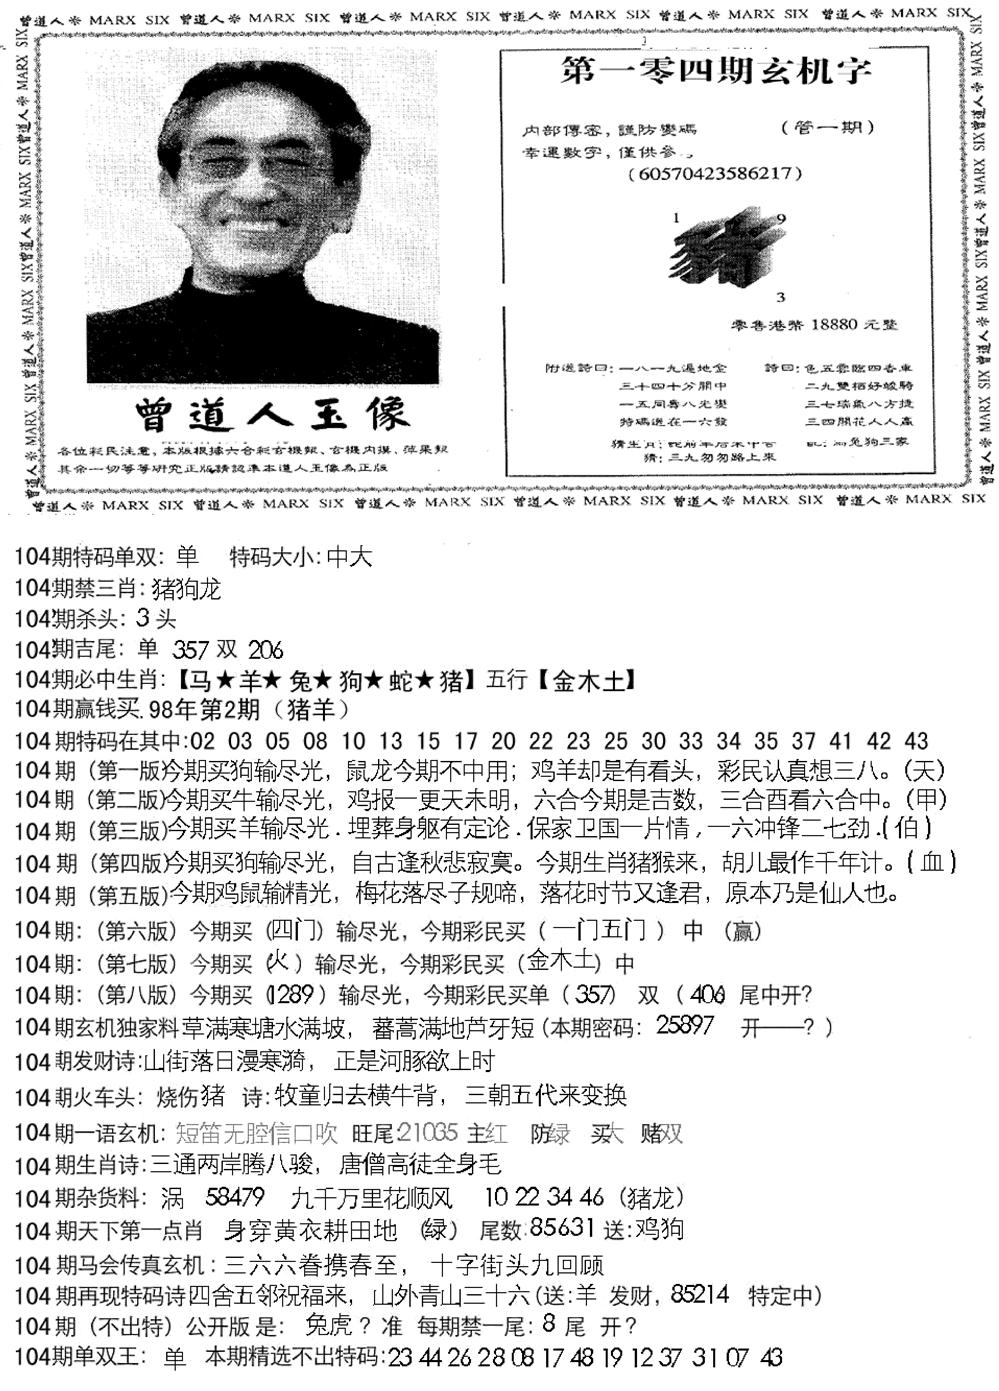 曾道人※ MARX SIX 曾道人※ MARX SIX 曾道人※ MARX SIX 曾道人※ MARX SIX 曾道人※ MARX SIX 曾道人※ MARX SIX
第一零四期玄机字
内部傳密，謹防變碼
(管一期)
幸運數字，僅供參
(60570423586217)
1
9
3
零售港幣 18880 元整
附送詩曰：一八一九遍地金
三十四十分開中
一五同尋八光變
特碼送在一六發
詩曰：色五雲臨四香車
二九雙栖好峻騎
三七瑞氣八方捷
三四開花人人贏
猜：三九匆匆路上來
曾道人玉像
各位彩民注意，本版根據六合彩玄機報，玄機内摸，蘋果報
其余一切等等研究正版精認準本道人玉像為正版
曾道人※ MARX SIX 曾道人※ MARX SIX 曾道人※ MARX SIX 曾道人※ MARX SIX 曾道人※ MARX SIX 曾道人※ MARX SIX
104期特码单双：单 特码大小:中大
104期禁三肖:猪狗龙
104期杀头：3头
104期吉尾：单 357 双 206
104期必中生肖:【马★羊★兔★狗★蛇★猪】五行【金木土】
104期赢钱买.98年第2期（猪羊）
104期特码在其中:02 03 05 08 10 13 15 17 20 22 23 25 30 33 34 35 37 41 42 43
104期（第一版)今期买狗输尽光，鼠龙今期不中用；鸡羊却是有看头，彩民认真想三八。（天）
104期（第二版)今期买牛输尽光，鸡报一更天未明，六合今期是吉数，三合酉看六合中。（甲）
104期（第三版)今期买羊输尽光.埋葬身躯有定论.保家卫国一片情,一六冲锋二七劲.(伯)
104期（第四版)今期买狗输尽光，自古逢秋悲寂寞。今期生肖猪猴来，胡儿最作千年计。(血)
104期（第五版)今期鸡鼠输精光，梅花落尽子规啼，落花时节又逢君，原本乃是仙人也。
104期：（第六版）今期买（四门）输尽光，今期彩民买（一门五门）中 （赢）
104期：（第七版）今期买（火）输尽光，今期彩民买（金木土）中
104期：（第八版）今期买（1289）输尽光，今期彩民买单（357） 双（406）尾中开?
104期玄机独家料草满寒塘水满坡，蕃蒿满地芦牙短(本期密码：25897 开——?）
104期发财诗:山街落日漫寒漪，正是河豚欲上时
104期火车头：烧伤猪 诗:牧童归去横牛背，三朝五代来变换
104期一语玄机：短笛无腔信口吹 旺尾:21035 主红 防绿 买大 赌双
104期生肖诗:三通两岸腾八骏，唐僧高徒全身毛
104期杂货料：涡 58479 九千万里花顺风 10 22 34 46（猪龙）
104期天下第一点肖 身穿黄衣耕田地 （绿） 尾数:85631 送:鸡狗
104期马会传真玄机:三六六眷携春至，十字街头九回顾
104期再现特码诗四舍五邻祝福来，山外青山三十六(送:羊 发财，85214 特定中）
104期（不出特）公开版是：兔虎？准 每期禁一尾：8尾 开？
104期单双王：单 本期精选不出特码:23 44 26 28 08 17 48 19 12 37 31 07 43